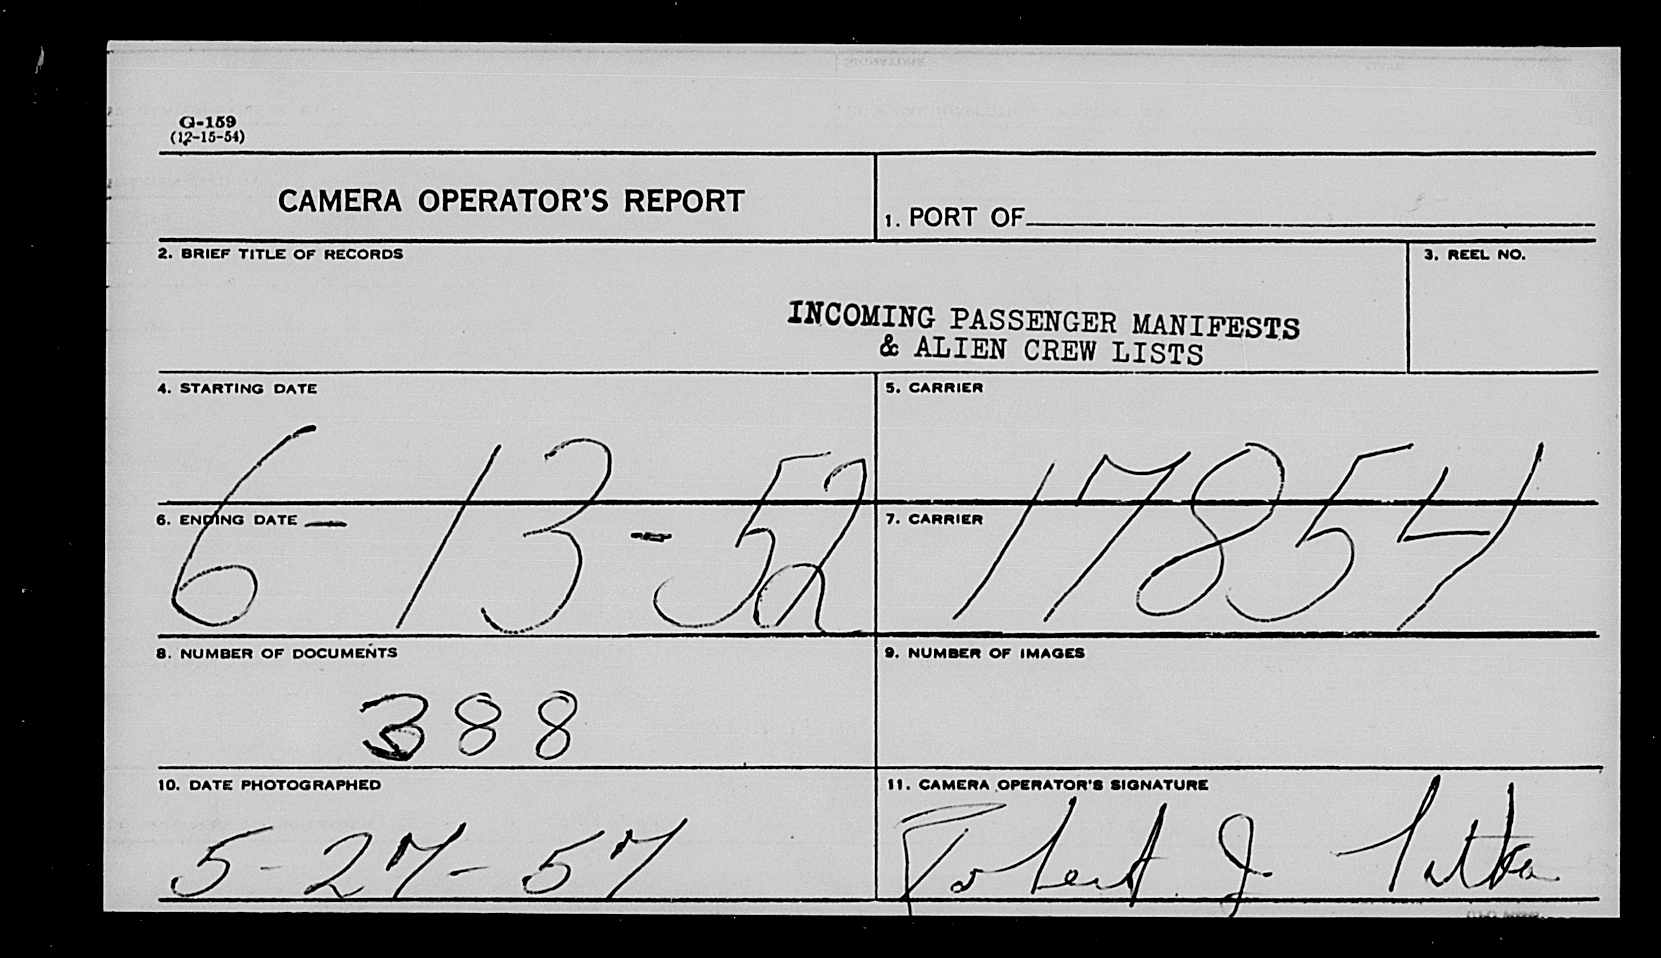 G-159
(12-15-54)
CAMERA OPERATOR'S REPORT
1. PORT OF
2. BRIEF TITLE OF RECORDS
3. REEL NO.
INCOMING PASSENGER MANIFESTS
& ALIEN CREW LISTS
4. STARTING DATE
5. CARRIER
6-13-52
17854
6. ENDING DATE
7. CARRIER
8. NUMBER OF DOCUMENTS
9. NUMBER OF IMAGES
388
10. DATE PHOTOGRAPHED
11. CAMERA OPERATOR'S SIGNATURE
5-27-57
Robert J.